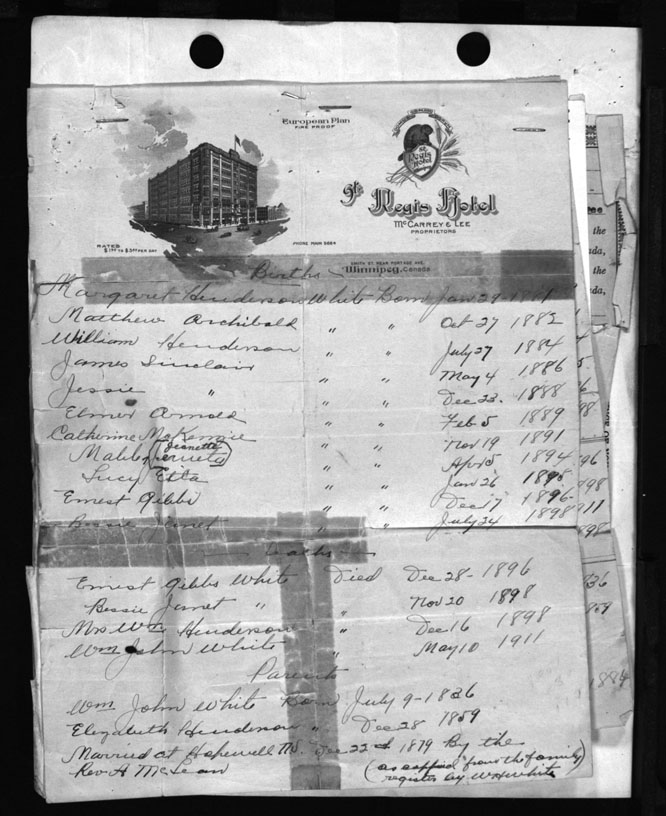 European Plan
FIRE PROOF
St. Regis Hotel
St Regis Hotel
McCARREY & LEE
PROPRIETORS
RATES
PHONE MAIN
SMITH ST. NEAR PORTAGE AVE.
Winnipeg, Canada
Births
Margaret Henderson White Born Jan 29-1881
Matthew Archibald " " Oct 27 1882
William Henderson " " July 27 1884
James Sinclair " " May 4 1886
Jessie " " " Dec 23. 1888
Elmer Arnold " " Feb 5 1889
Catherine McKenzie " " Nov 19 1891
Jeanette
Mable " " Apr 5 1894
Lucy Etta " " Jan 26
Ernest Gibbs " " Dec 17 1896-
Bessie Janet " " July 24 1898
Deaths
Ernest Gibbs White Died Dec 28-1896
Bessie Janet " " Nov 20 1898
Mrs Wm Henderson " Dec 16 1898
Wm John White " May 10 1911
Parents
Wm John White Born July 9-1836
Elizabeth Henderson " Dec 28 1859
Married at Hopewell NS. Dec 22nd 1879 By the
Rev A McLean
(as copied from the family
register by WH White)
the
ada,
the
ada,